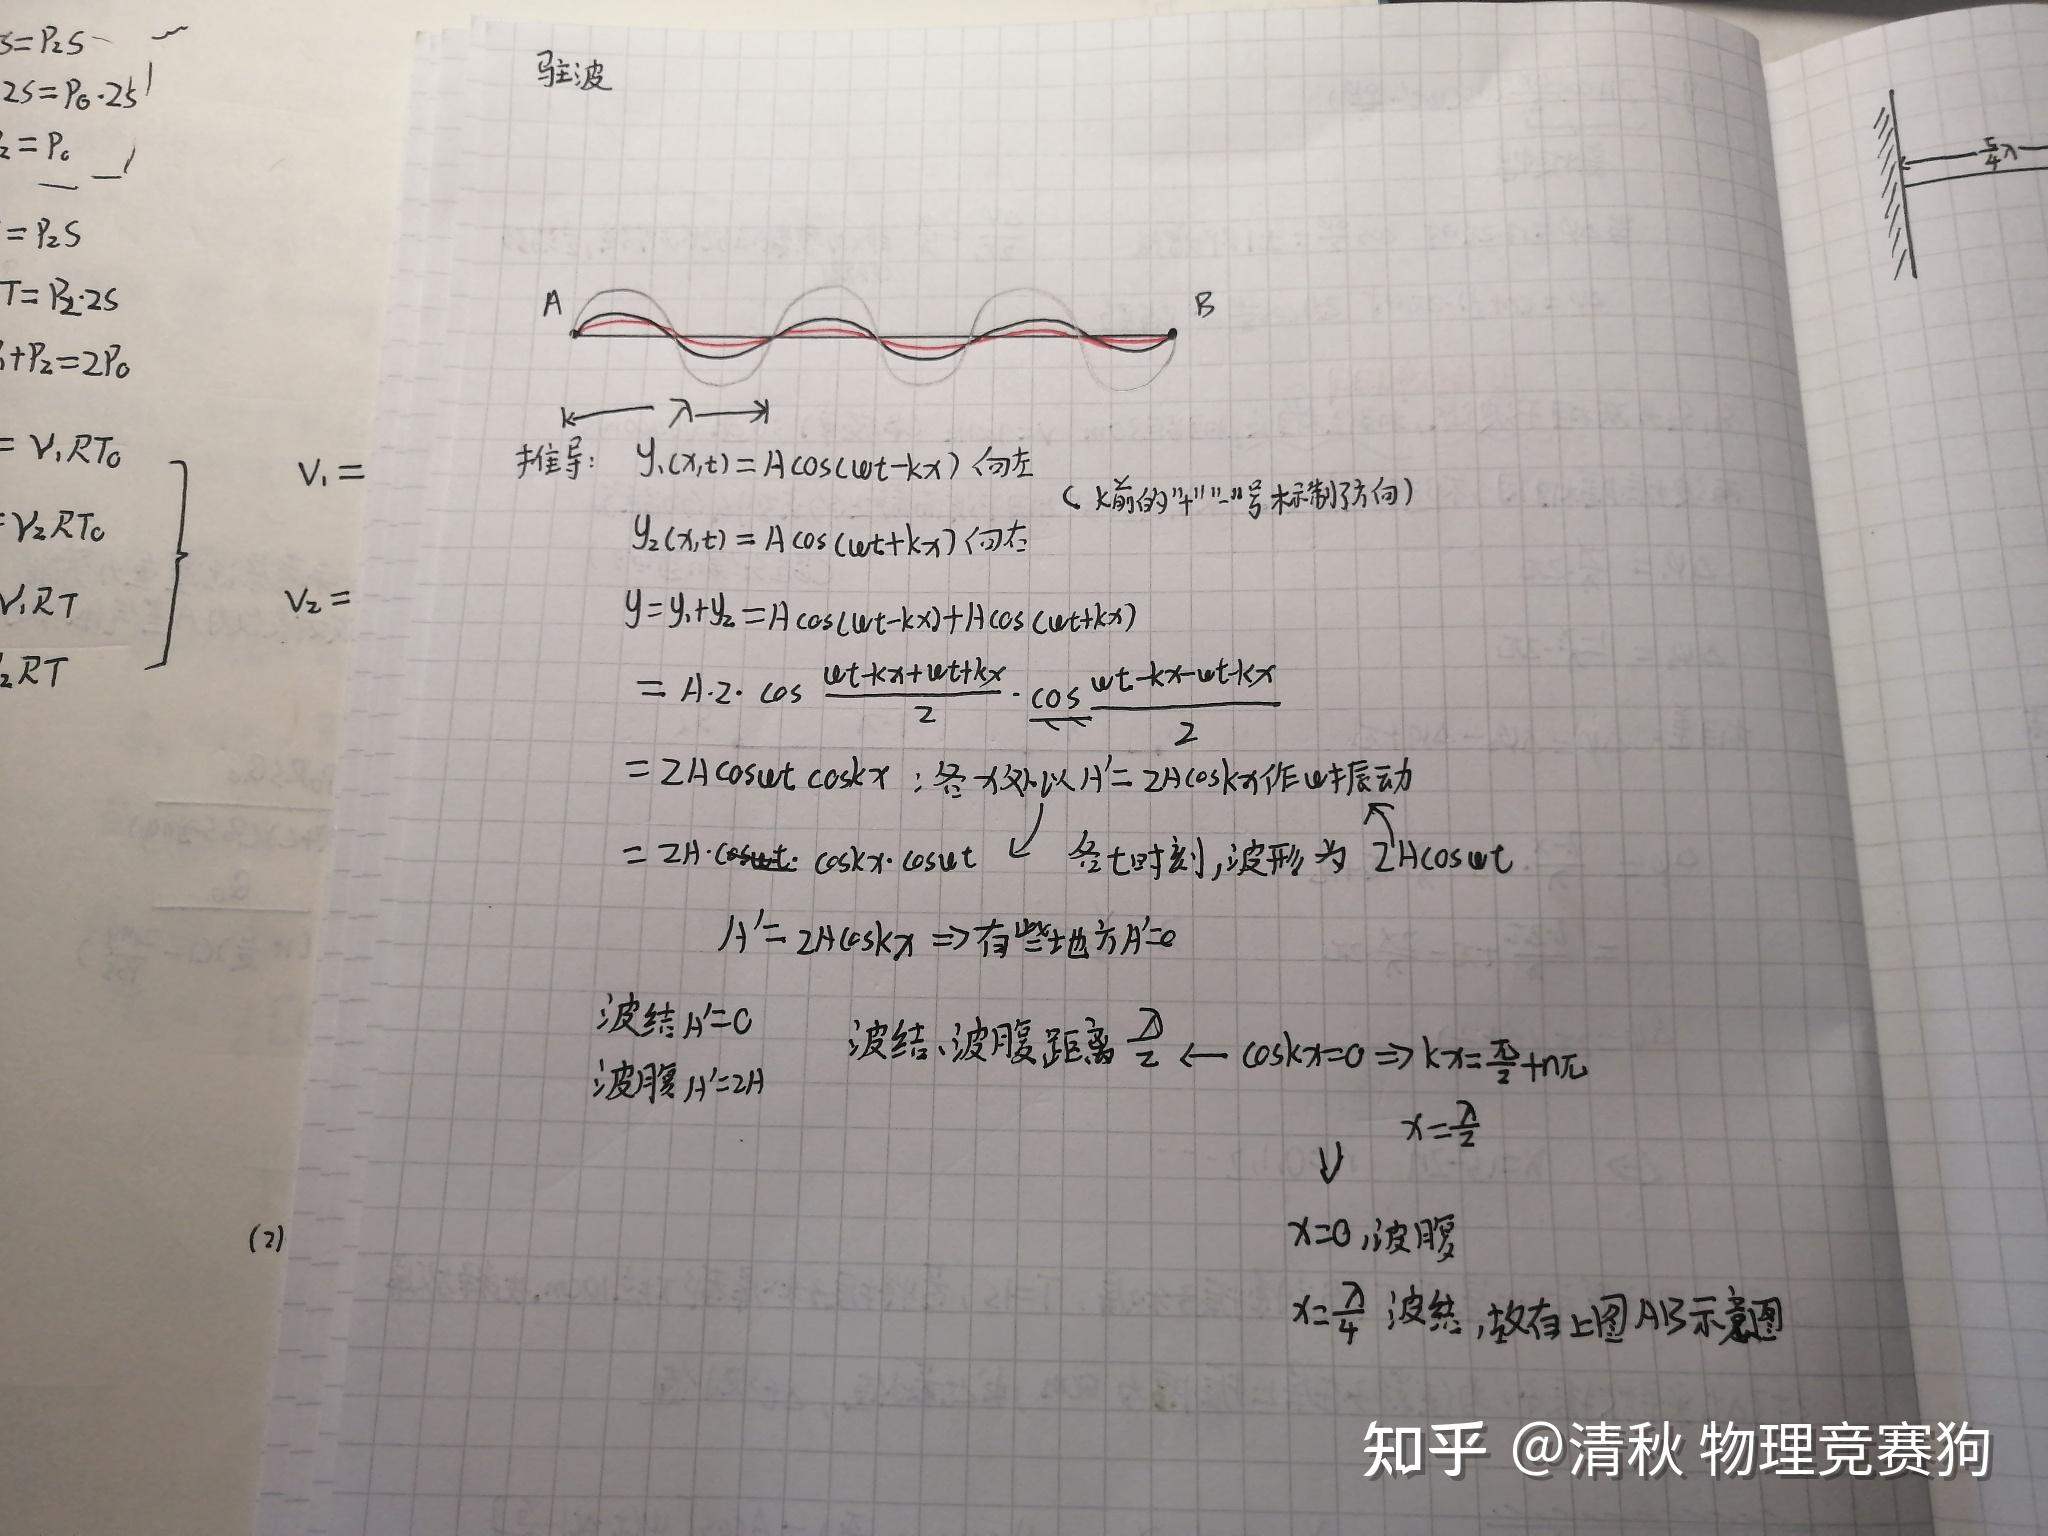 S=P₂S
2S=P₀·2S
₂=P₀
=P₂S
T=P₂·2S
₁+P₂=2P₀
=ν₁RT₀
=ν₂RT₀
ν₁RT
₂RT
V₁=
V₂=
(2)
驻波
A B
λ
推导: y₁(x,t)=Acos(ωt-kx) 向左
(k前的"+""-"号标制了方向)
y₂(x,t)=Acos(ωt+kx) 向右
y=y₁+y₂=Acos(ωt-kx)+Acos(ωt+kx)
=A·2·cos (ωt-kx+ωt+kx)/2 · cos (ωt-kx-ωt-kx)/2
=2Acosωt coskx : 各x处以A'=2Acoskx作ω振动
=2A·cosωt· coskx·cosωt 各t时刻,波形为 2Acosωt
A'=2Acoskx ⇒ 有些地方A'=0
波结A'=0
波腹A'=2A
波结、波腹距离 λ/2 ← coskx=0 ⇒ kx=π/2+nπ
x=λ/2
x=0,波腹
x=λ/4 波结,故有上图AB示意图
5/4λ
知乎 @清秋 物理竞赛狗